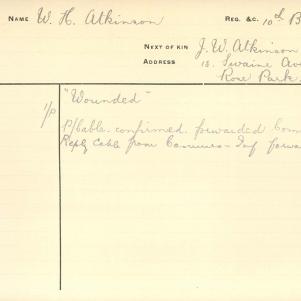 NAME W. H. Atkinson REG. &C. 10th B
NEXT OF KIN J. W. Atkinson
ADDRESS 18. Swaine Av
Rose Park
"Wounded"
1/P P/Cable. confirmed. forwarded Com
Reply Cable from Commrs - Inf forwa